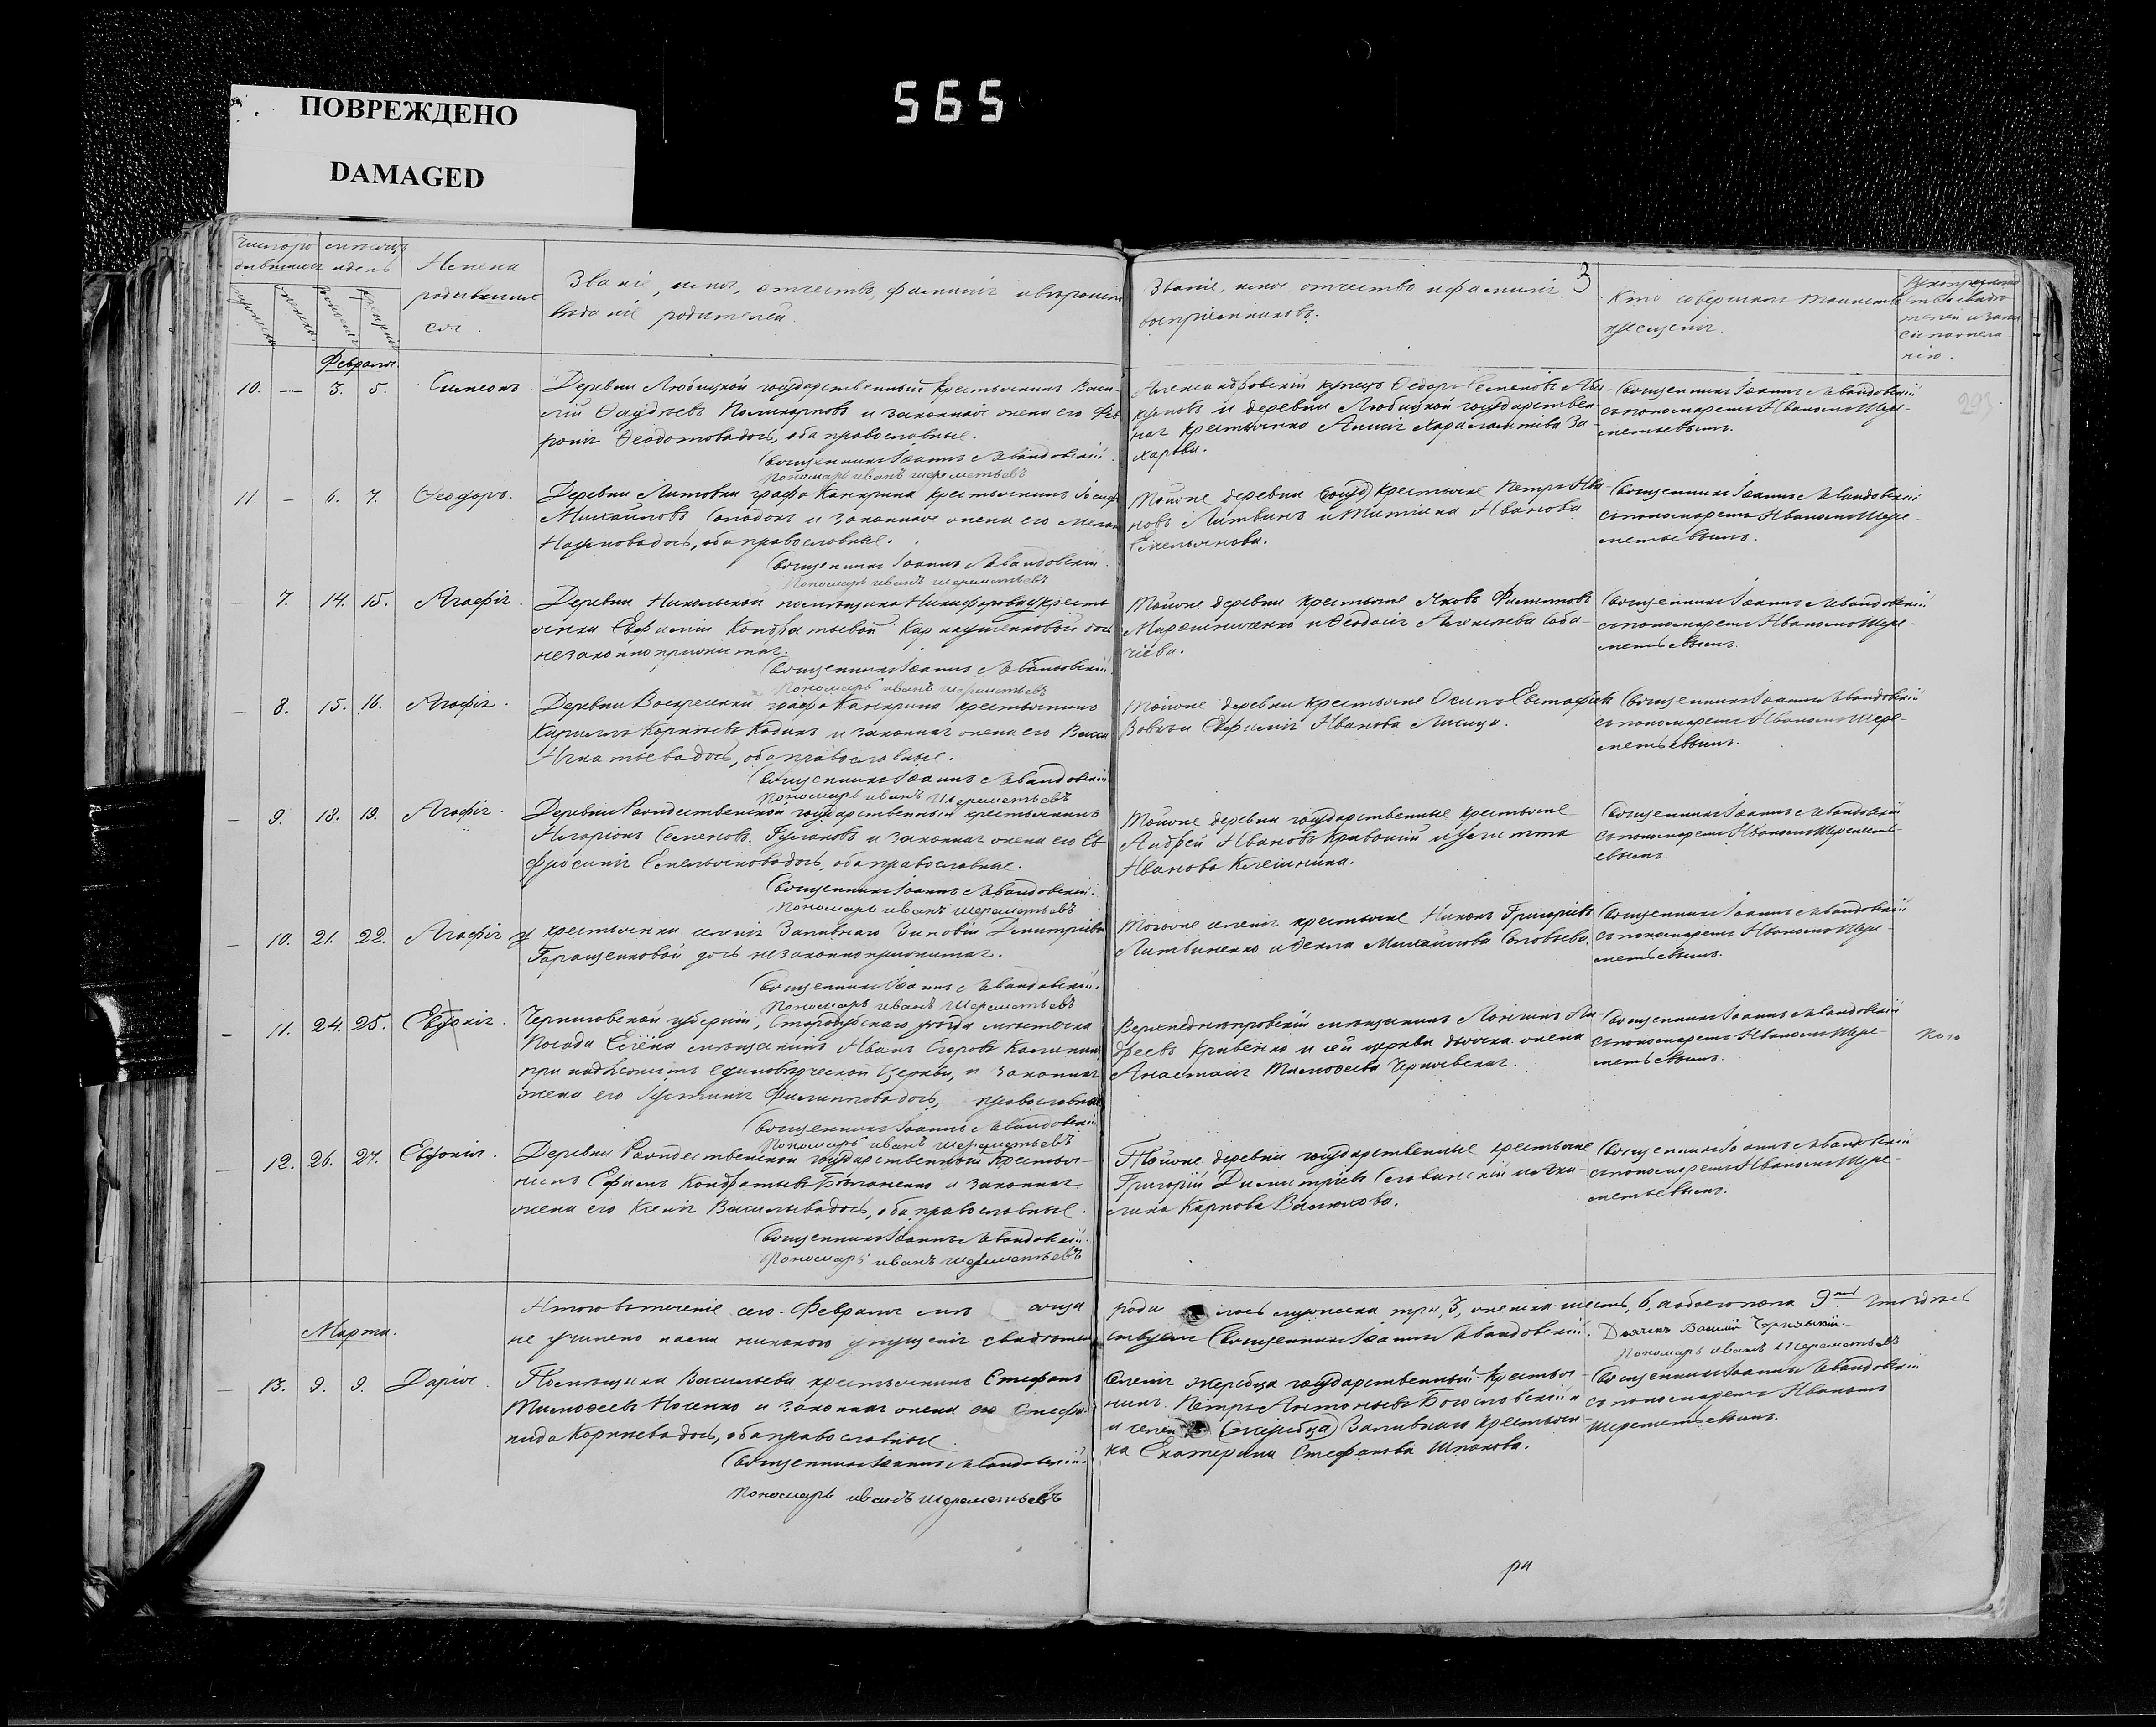 565
ПОВРЕЖДЕНО
DAMAGED
Имена
родивших
ся.
Званіе, имя, отчество, фамилія и вѣроиспо
вѣданіе родителей.
Званіе, имя, отчество и фамилія
воспріемниковъ.
3
Кто совершалъ таинство
крещенія.
Февраль
10. — 3. 5. Симеонъ
Деревни Любицкой государственный крестьянинъ Васи-
лій Фаддѣевъ Поликарповъ и законная жена его Фев
ронія Ѳеодотова дочь, оба православные.
Священникъ Іоаннъ Левандовскій.
Пономарь иванъ шереметьевъ
Александровскій купецъ Ѳедоръ Семеновъ
и деревни Любицкой государствен
ная крестьянка Анна Харлампіева За-
харова.
Священникъ Іоаннъ Левандовскій
съ пономаремъ Иваномъ Шере-
метьевымъ.
293
11. — 6. 7. Ѳеодоръ.
Деревни Литовки графа Канкрина крестьянинъ Іосифъ
Михайловъ и законная жена его
Наумова дочь, оба православные.
Священникъ Іоаннъ Левандовскій.
Пономарь иванъ шереметьевъ
Тойже деревни крестьяне Петръ Ива-
новъ Литвинъ и Татіана Иванова
Емельянова.
Священникъ Іоаннъ Левандовскій
съ пономаремъ Иваномъ Шере-
метьевымъ.
— 7. 14. 15. Агафія.
Деревни Никольской помѣщика крестья
янки Евфиміи Кондратьевой дочь
незаконноприжитая.
Священникъ Іоаннъ Левандовскій
Пономарь иванъ шереметьевъ
Тойже деревни крестьяне Яковъ Филиповъ
Мирошниченко и Ѳеодосія Алексѣева Соба-
чіева.
Священникъ Іоаннъ Левандовскій
съ пономаремъ Иваномъ Шере-
метьевымъ.
— 8. 15. 16. Агафія.
Деревни Воскресенки графа Канкрина крестьянинъ
Кириллъ Корнѣевъ и законная жена его Васса
Игнатьева дочь, оба православные.
Священникъ Іоаннъ Левандовскій
Пономарь иванъ Шереметьевъ
Тойже деревни крестьяне Осипъ Евстафіевъ
и Евфимія Иванова Лисица.
Священникъ Іоаннъ Левандовскій
съ пономаремъ Иваномъ Шере-
метьевымъ.
— 9. 18. 19. Агафія.
Деревни Рождественской государственный крестьянинъ
Иларіонъ Семеновъ и законная жена его Ев
фросинія Емельянова дочь, оба православные.
Священникъ Іоаннъ Левандовскій.
Пономарь иванъ шереметьевъ
Тойже деревни государственные крестьяне
Андрей Ивановъ и Улитта
Иванова
Священникъ Іоаннъ Левандовскій
съ пономаремъ Иваномъ Шеремет-
евымъ.
— 10. 21. 22. Агафія
крестьянки имѣнія Запивнаго Зиновіи Димитріевой
Геращенковой дочь незаконноприжитая.
Священникъ Іоаннъ Левандовскій.
Пономарь иванъ Шереметьевъ
Тогоже имѣнія крестьяне Никонъ Григорьевъ
Литвиненко и Ѳекла Михайлова Соловьева.
Священникъ Іоаннъ Левандовскій
съ пономаремъ Иваномъ Шере-
метьевымъ.
— 11. 24. 25. Евдокія.
Черниговской губерніи, Стародубскаго уѣзда мѣстечка
Посада мѣщанинъ Иванъ Егоровъ
Единовѣрческой Церкви, и законная
жена его Іустинія Филиппова дочь, православная
Священникъ Іоаннъ Левандовскій
Пономарь иванъ шереметьевъ
Верхнеднѣпровскій мѣщанинъ Ан-
дреевъ Кривенко и сей церкви дьячка жена
Анастасія Тимоѳеева Чернявская.
Священникъ Іоаннъ Левандовскій
съ пономаремъ Иваномъ Шере-
метьевымъ.
— 12. 26. 27. Евдокія.
Деревни Рождественской государственный крестья-
нинъ Ефимъ Кондратьевъ и законная
жена его Ксенія Васильева дочь, оба православные.
Священникъ Іоаннъ Левандовскій.
Пономарь иванъ шереметьевъ
Тойже деревни государственные крестьяне
Григорій Димитріевъ и
Карпова
Священникъ Іоаннъ Левандовскій
съ пономаремъ Иваномъ Шере-
метьевымъ.
Итого въ теченіе сего Февраля мѣ сяца роди лось мужеска три, 3, женска шесть, 6, а обоего пола 9
не учинено нами никакого упущенія свидѣтель ствуемъ Священникъ Іоаннъ Левандовскій. Дьячекъ Василій Чернявскій
Пономарь иванъ Шереметьевъ
Марта.
— 13. 9. 9. Дарія.
Помѣщика Васильева крестьянинъ Стефанъ
Тимоѳеевъ Носенко и законная жена его Стефа
нида Корнѣева дочь, оба православные.
Священникъ Іоаннъ Левандовскій.
Пономарь иванъ шереметьевъ
государственный крестья-
нинъ Петръ Антоньевъ Богословскій
Запивнаго крестьян-
ка Екатерина Стефанова Шпакова.
Священникъ Іоаннъ Левандовскій
съ пономаремъ Иваномъ
Шереметьевымъ.
ра